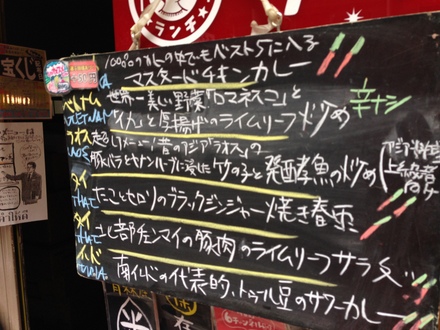 ランチ
宝くじ
1000カ所の中でもベスト5に入る
マスタードチキンカレー
ベトナム
VIETNAM
世界一美しい野菜「ロマネスコ」と
イカと厚揚げのライムリーフ炒め
辛ナシ
ラオス
LAOS
メニュー!昔のアジア"ラオス"の
豚バラとキナンハーブに浸した竹の子と発酵魚の炒め
アジア料理
上級者
向け
タイ
THAI
たことセロリのブラックジンジャー焼き春雨
タイ
THAI
北部ゼンマイの豚肉のライムリーフサラダ
インド
INDIA
南インドの代表的、トゥール豆のサワーカレー